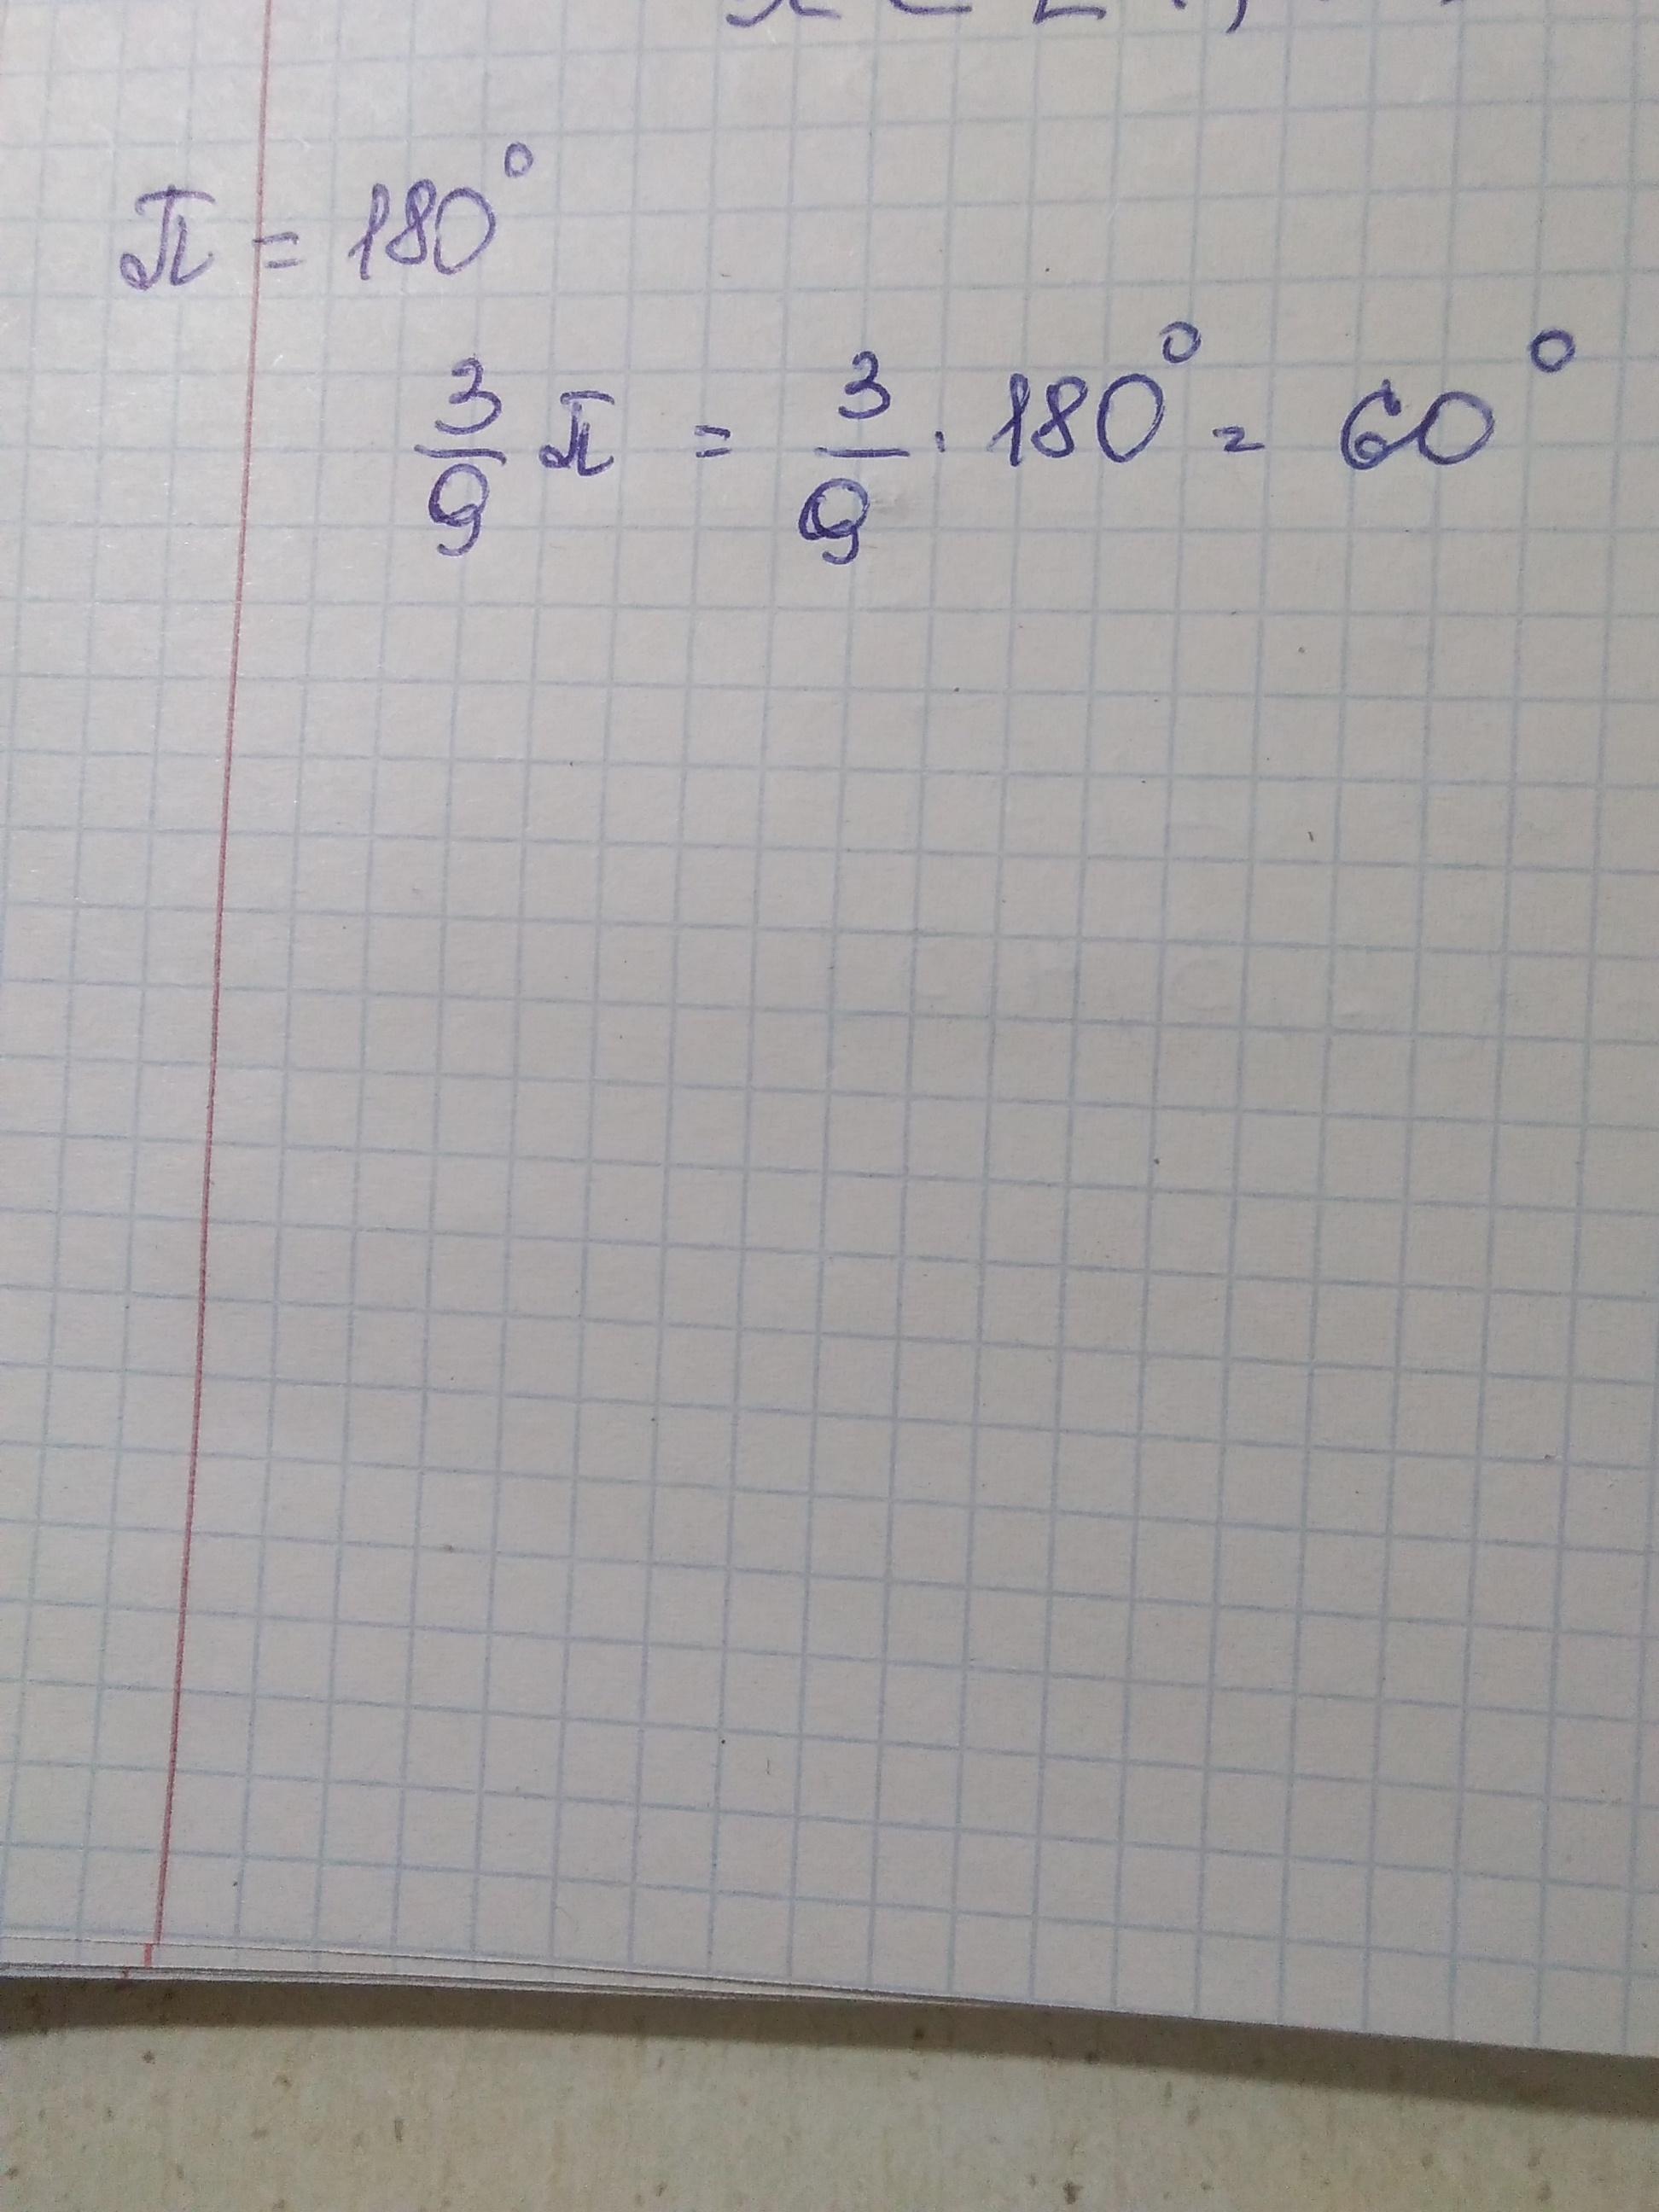 π = 180°
3/9 π = 3/9 · 180° = 60°